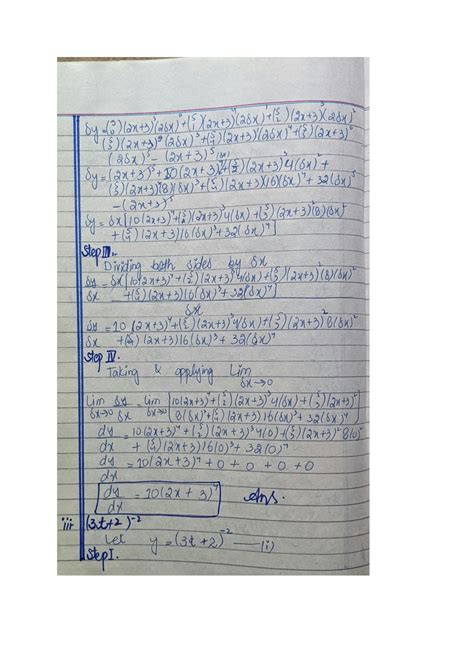 δy = (5 0)(2x+3)^5(2δx)^0 + (5 1)(2x+3)^4(2δx)^1 + (5 2)(2x+3)^3(2δx)^2
(5 3)(2x+3)^2(2δx)^3 + (5 4)(2x+3)(2δx)^4 + (5 5)(2x+3)^0
(2δx)^5 - (2x+3)^5
δy = (2x+3)^5 + 10(2x+3)^4(δx) + (5 2)(2x+3)^3 4(δx)^2 +
(5 3)(2x+3)^2(8)(δx)^3 + (5 4)(2x+3)(16)(δx)^4 + 32(δx)^5
-(2x+3)^5
δy = δx[10(2x+3)^4 + (5 2)(2x+3)^3 4(δx) + (5 3)(2x+3)^2(8)(δx)^2
+ (5 4)(2x+3)16(δx)^3 + 32(δx)^4]
Step III.
Dividing both sides by δx
δy/δx = δx[10(2x+3)^4 + (5 2)(2x+3)^3 4(δx) + (5 3)(2x+3)^2(8)(δx)^2
+ (5 4)(2x+3)16(δx)^3 + 32(δx)^4]
δx
δy/δx = 10(2x+3)^4 + (5 2)(2x+3)^3 4(δx) + (5 3)(2x+3)^2 8(δx)^2
+ (5 4)(2x+3)16(δx)^3 + 32(δx)^4
Step IV.
Taking & applying Lim δx→0
Lim δx→0 δy/δx = Lim δx→0 [10(2x+3)^4 + (5 2)(2x+3)^3 4(δx) + (5 3)(2x+3)^2
8(δx)^2 + (5 4)(2x+3)16(δx)^3 + 32(δx)^4]
dy/dx = 10(2x+3)^4 + (5 2)(2x+3)^3 4(0) + (5 3)(2x+3)^2 8(0)^2
+ (5 4)(2x+3)16(0)^3 + 32(0)^4
dy/dx = 10(2x+3)^4 + 0 + 0 + 0 + 0
dy/dx = 10(2x + 3)^4 Ans.
iii (3t+2)^-2
Let y = (3t+2)^-2 —(i)
Step I.